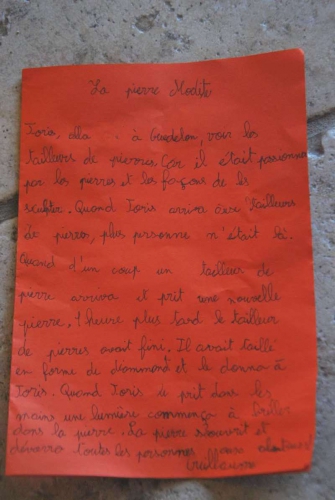 La pierre Modite
Joris, alla .. à Guedelon, voir les
tailleurs de pierres, Car il était passionné
par les pierres et les façons de les
sculpter. Quand Joris arriva aux tailleurs
de pierres, plus personne n'était là.
Quand d'un coup un tailleur de
pierre arriva et prit une nouvelle
pierre. 1 heure plus tard le tailleur
de pierres avait fini. Il avait taillé
en forme de diammend et la donna à
Joris. Quand Joris la prit dans les
mains une lumière commença à briller
dans la pierre. La pierre s'ouvrit et
dévora toutes les personnes
Guillaume